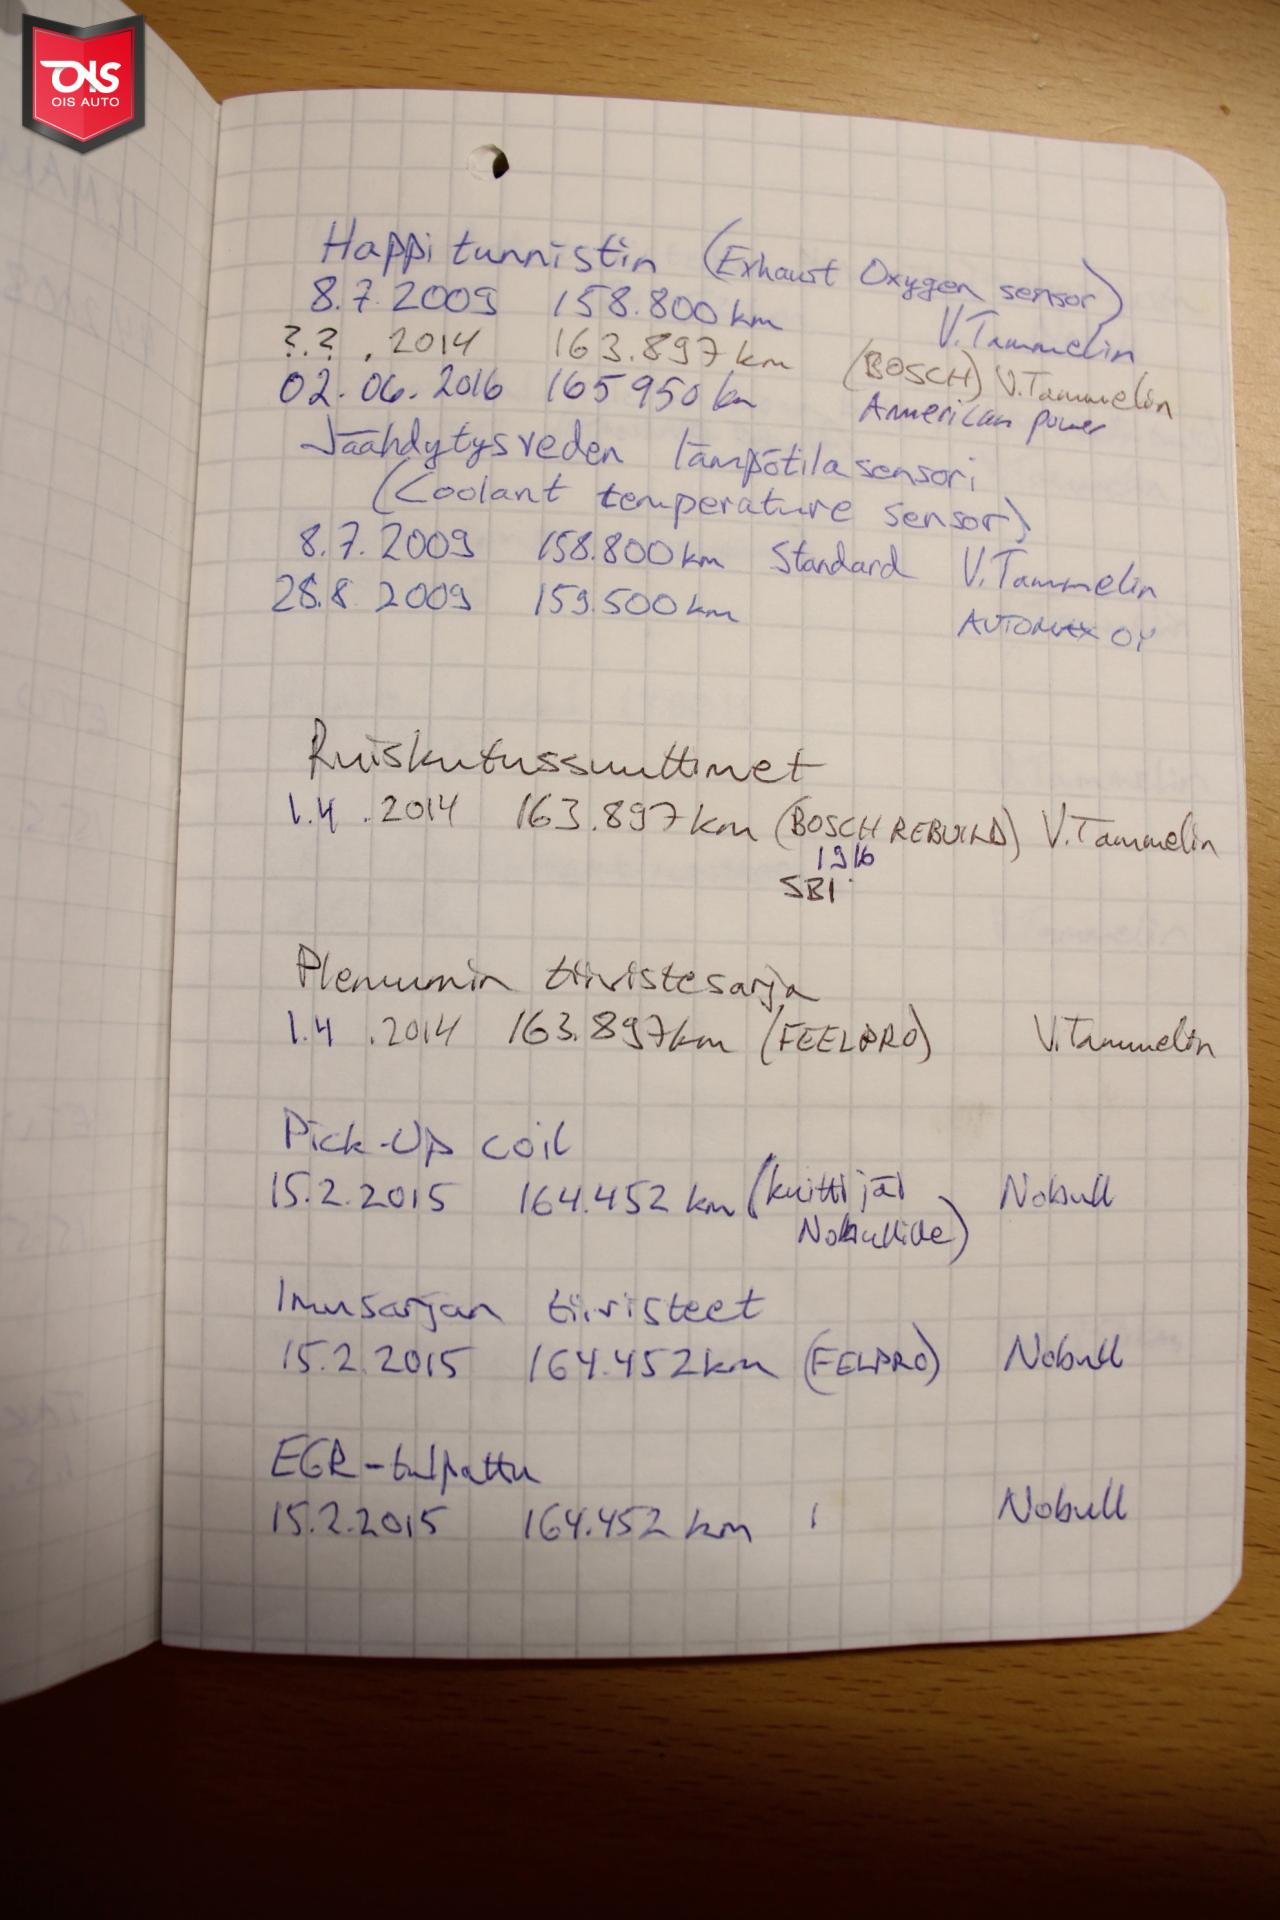 OIS
OIS AUTO
Happitunnistin (Exhaust Oxygen sensor)
8.7.2009 158.800 km V.Tammelin
?.?.2014 163.897 km (BOSCH) V.Tammelin
02.06.2016 165950 km American power
Jäähdytysveden lämpötilasensori
(Coolant temperature sensor)
8.7.2009 158.800 km Standard V.Tammelin
28.8.2009 159.500 km AUTOMAX OY
Ruiskutussuuttimet
1.4.2014 163.897 km (BOSCH REBUILD) V.Tammelin
1916
SBI
Plenumin tiivistesarja
1.4.2014 163.897 km (FEELPRO) V.Tammelin
Pick-Up coil
15.2.2015 164.452 km (kuitti jäi Nobull
Nobullille)
Imusarjan tiivisteet
15.2.2015 164.452 km (FELPRO) Nobull
EGR-tulpattu
15.2.2015 164.452 km Nobull